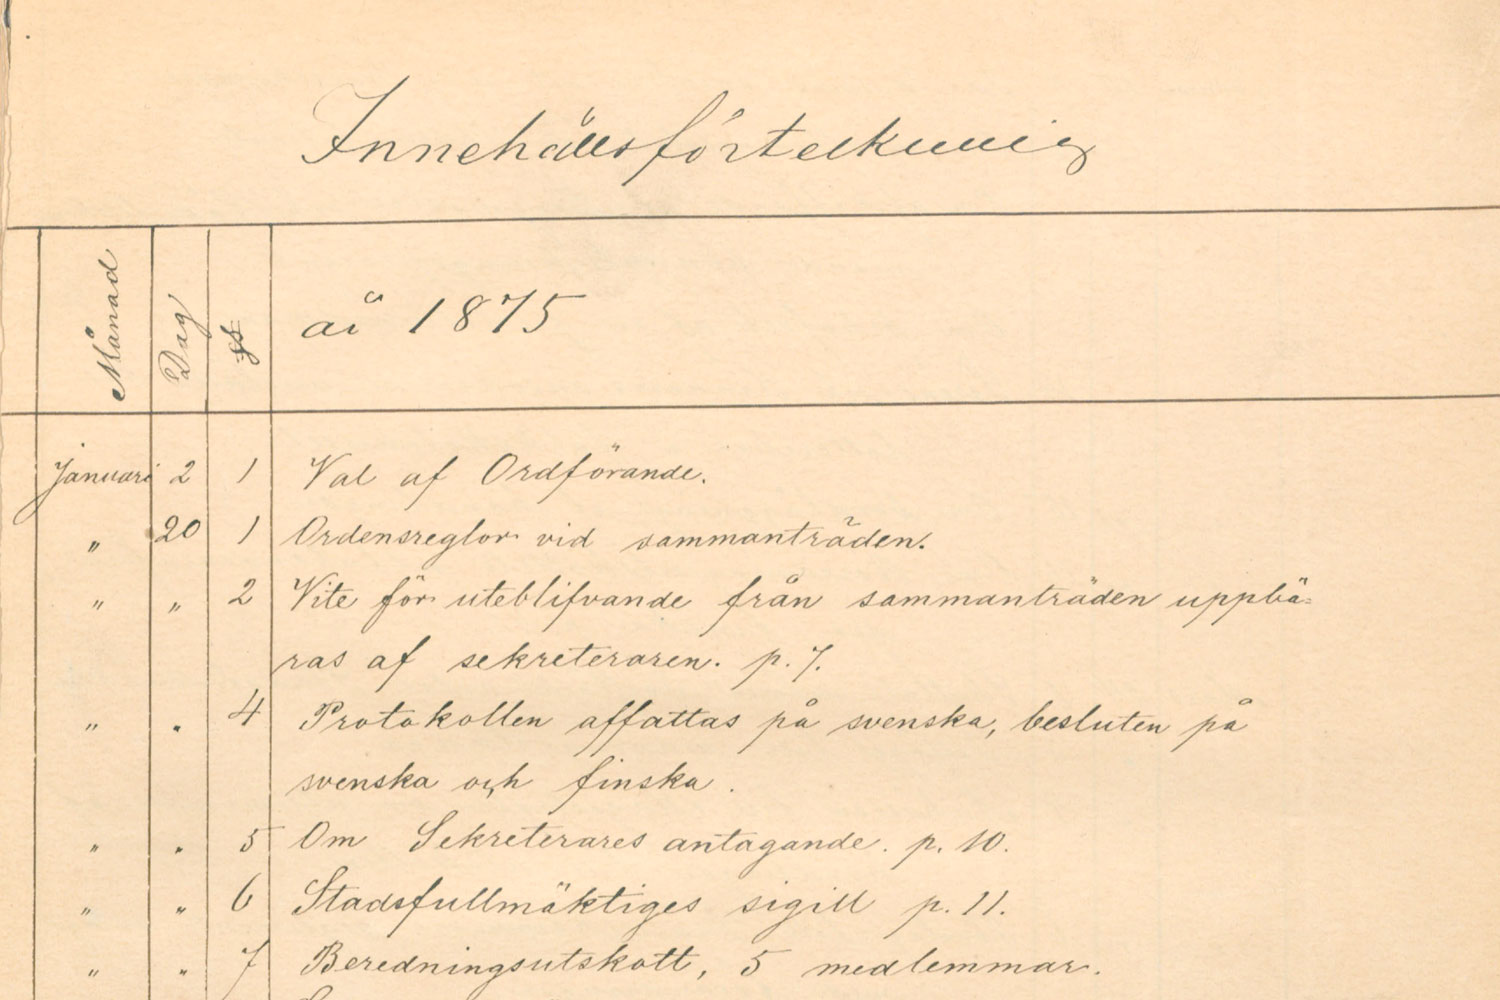 Innehållsförteckning
Månad Dag § år 1875
Januari 2 1 Val af Ordförande.
" 20 1 Ordensreglor vid sammanträden.
" " 2 Vite för uteblifvande från sammanträden uppbä-
ras af sekreteraren. p. 7.
" " 4 Protokollen affattas på svenska, besluten på
svenska och finska.
" " 5 Om Sekreterares antagande. p. 10.
" " 6 Stadsfullmäktiges sigill p. 11.
" " 7 Beredningsutskott, 5 medlemmar.